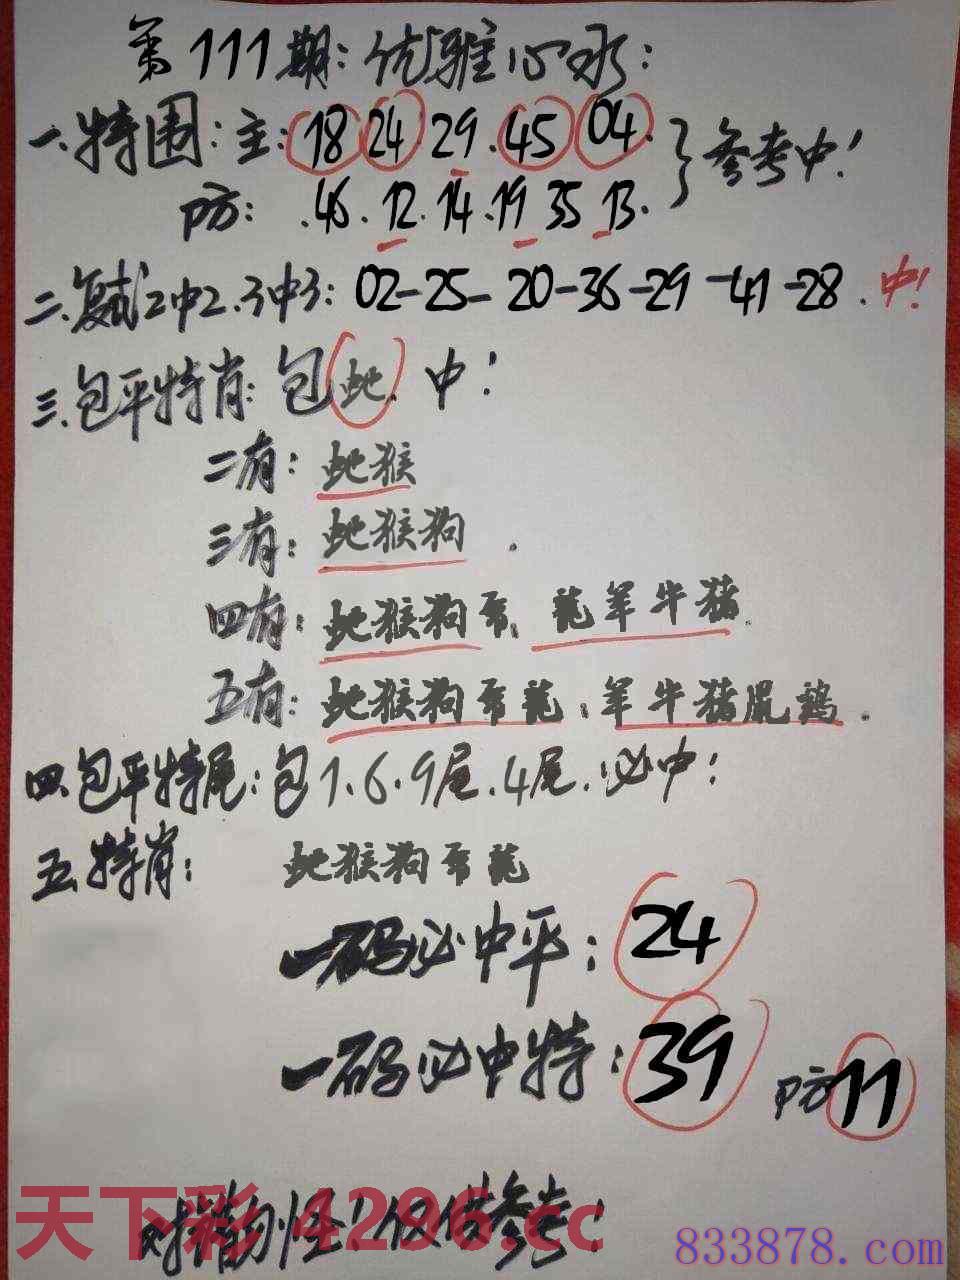 第111期：优雅心水：
一.特围：主：18 24 . 29 . 45 04 . 参考中！
防： . 46 . 12 . 14 . 19 35 13 .
二.复式2中2.3中3：02-25-20-36-29-41-28 . 中！
三.包平特肖：包蛇. 中！
二有：蛇猴
三有：蛇猴狗 .
四有：蛇猴狗 . 龍羊牛猪.
五有：蛇猴狗 龍 . 羊牛猪鼠鷄 .
四.包平特尾：包1.6.9尾.4尾. 必中！
五.特肖： 蛇猴狗 龍
一码必中平：24
一码必中特：39 防11
对错勿怪！仅供参考！
天下彩 4296.cc
833878.com